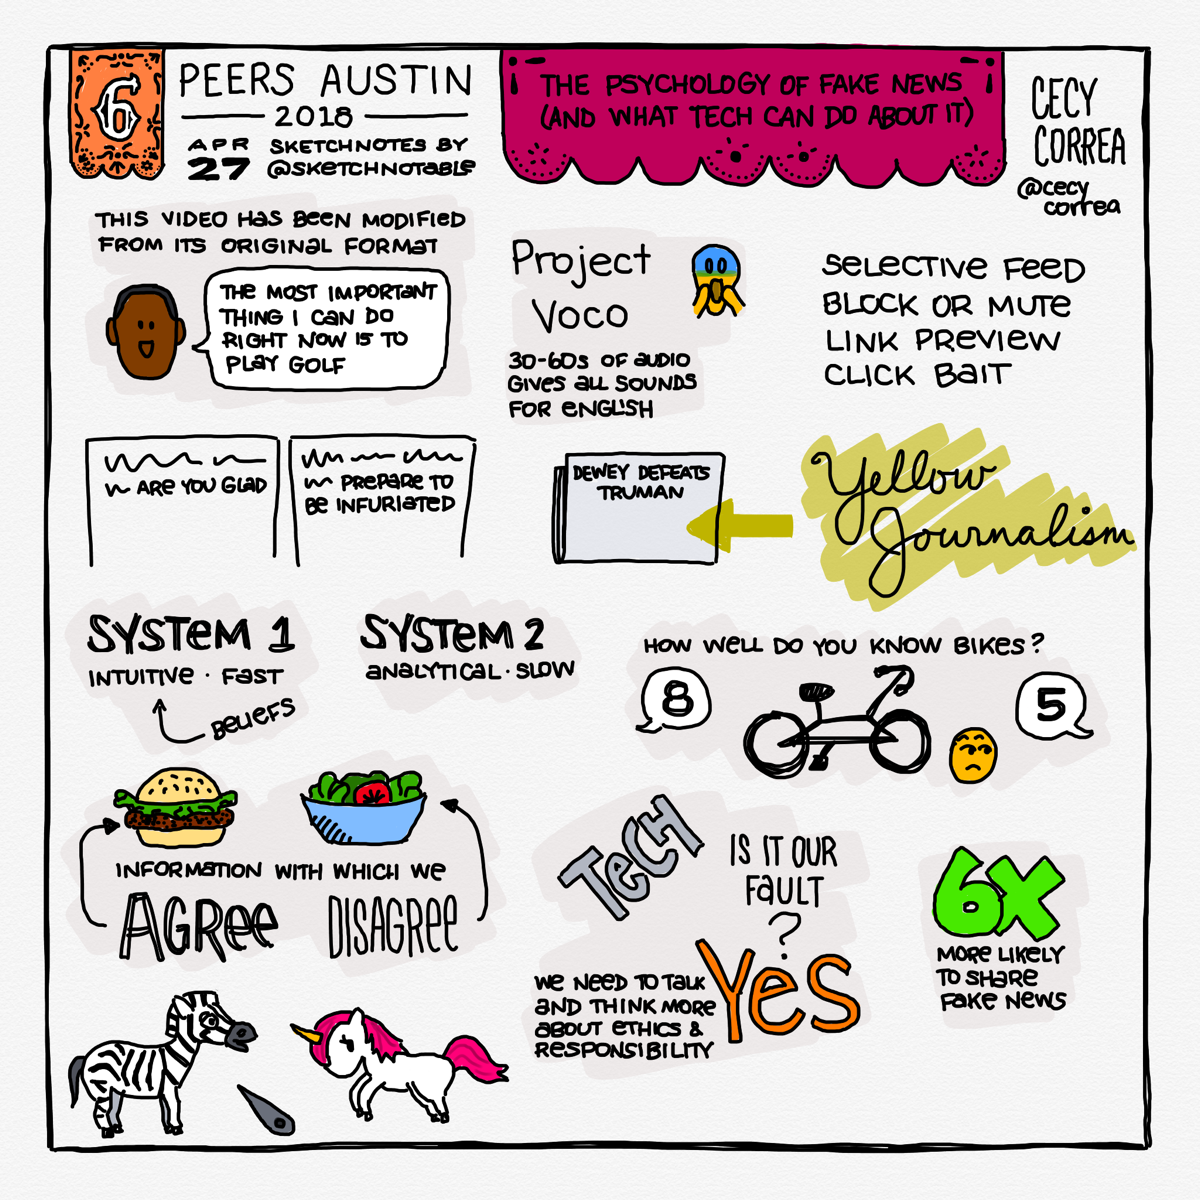 6
PEERS AUSTIN
2018
APR
27
SKETCHNOTES BY
@SKETCHNOTABLE
THE PSYCHOLOGY OF FAKE NEWS
(AND WHAT TECH CAN DO ABOUT IT)
CECY
CORREA
@cecy
correa
THIS VIDEO HAS BEEN MODIFIED
FROM ITS ORIGINAL FORMAT
THE MOST IMPORTANT
THING I CAN DO
RIGHT NOW IS TO
PLAY GOLF
Project
Voco
30-60s OF AUDIO
GIVES ALL SOUNDS
FOR ENGLISH
SELECTIVE FEED
BLOCK OR MUTE
LINK PREVIEW
CLICK BAIT
ARE YOU GLAD
PREPARE TO
BE INFURIATED
DEWEY DEFEATS
TRUMAN
Yellow
Journalism
SYSTEM 1
INTUITIVE · FAST
BELIEFS
SYSTEM 2
ANALYTICAL · SLOW
HOW WELL DO YOU KNOW BIKES?
8
5
INFORMATION WITH WHICH WE
AGREE
DISAGREE
TECH
IS IT OUR
FAULT
?
YES
WE NEED TO TALK
AND THINK MORE
ABOUT ETHICS &
RESPONSIBILITY
6X
MORE LIKELY
TO SHARE
FAKE NEWS